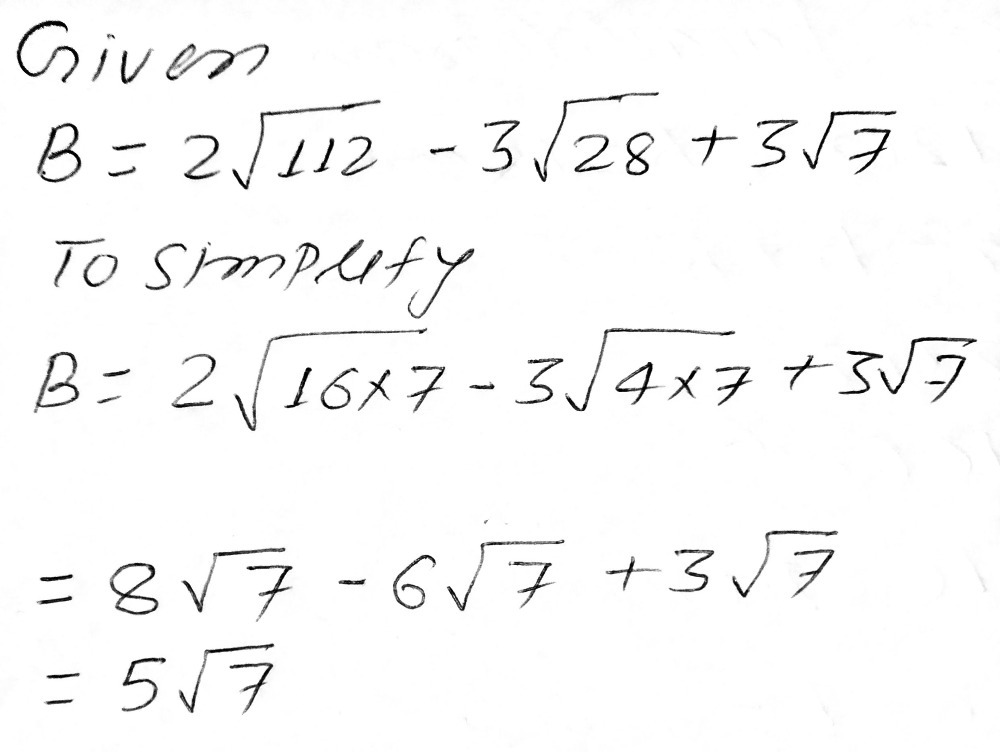 Given
B = 2√112 - 3√28 + 3√7
To simplify
B = 2√16×7 - 3√4×7 + 3√7
= 8√7 - 6√7 + 3√7
= 5√7